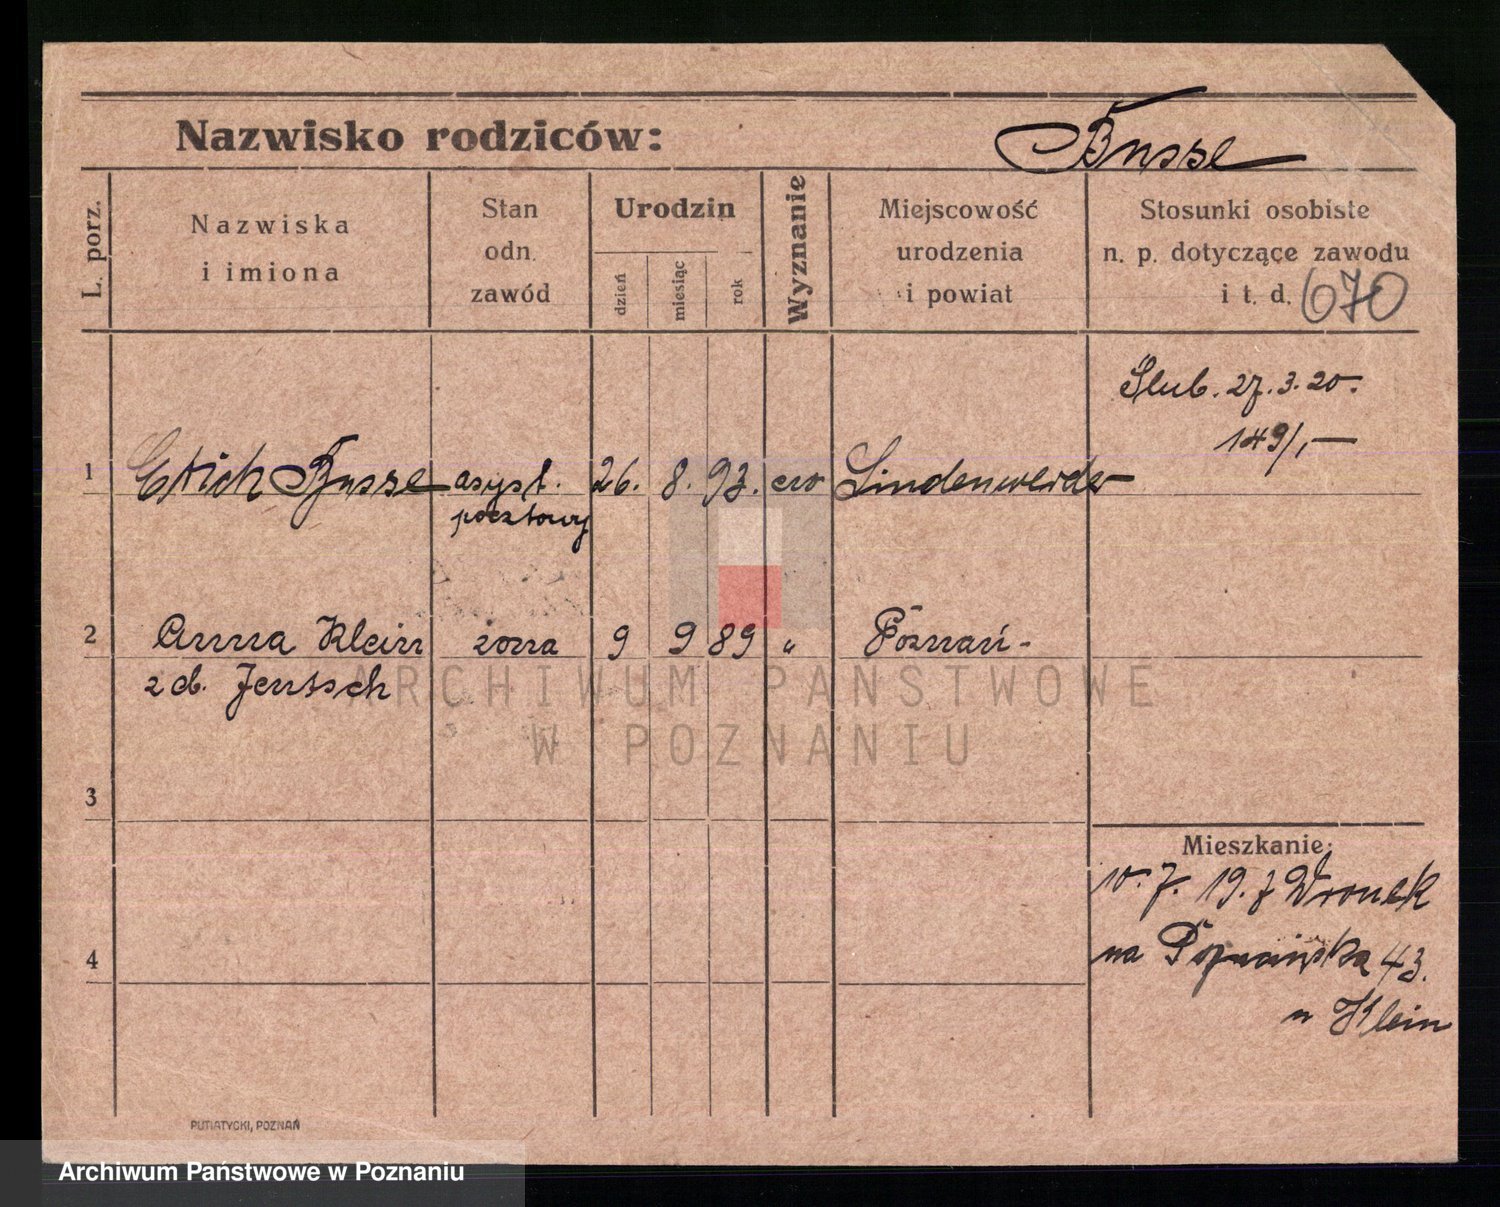 Nazwisko rodziców: Busse
L. porz.
Nazwiska
i imiona
Stan
odn.
zawód
Urodzin
dzień
miesiąc
rok
Wyznanie
Miejscowość
urodzenia
i powiat
Stosunki osobiste
n. p. dotyczące zawodu
i t. d. 670
Slub. 27.3.20.
149/,—
1 Erich Busse asyst. 26. 8. 93. ew Lindenwerder
pocztowy
2 Anna Klein żona 9 9 89 " Poznań-
z d. Jentsch
3
4
Mieszkanie:
10. 7. 19. z Wronek
na Poznańska 43.
u Klein
PUTIATYCKI, POZNAŃ
ARCHIWUM PAŃSTWOWE
W POZNANIU
Archiwum Państwowe w Poznaniu